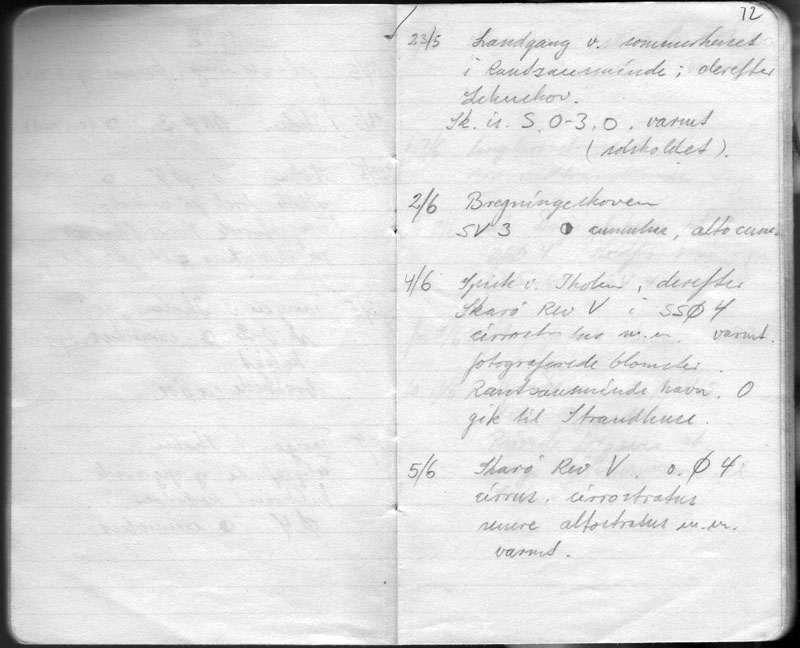 72
23/5 Landgang v. sommerhuset
i Rantzausminde; derefter
Lehnskov.
Sk. is. S. 0-3. O. varmt
(solskoldet).
2/6 Bregningeskoven
SV 3 ◑ cumulus, altocum
4/6 v. Tholm, derefter
Skarö Rev V i SSØ 4
cirrostratus m.m. varmt.
fotograferede blomster.
Rantzausminde havn. O
gik til Strandhuse.
5/6 Skarö Rev V. o. Ø 4
cirrus. cirrostratus
senere altostratus m.m.
varmt.